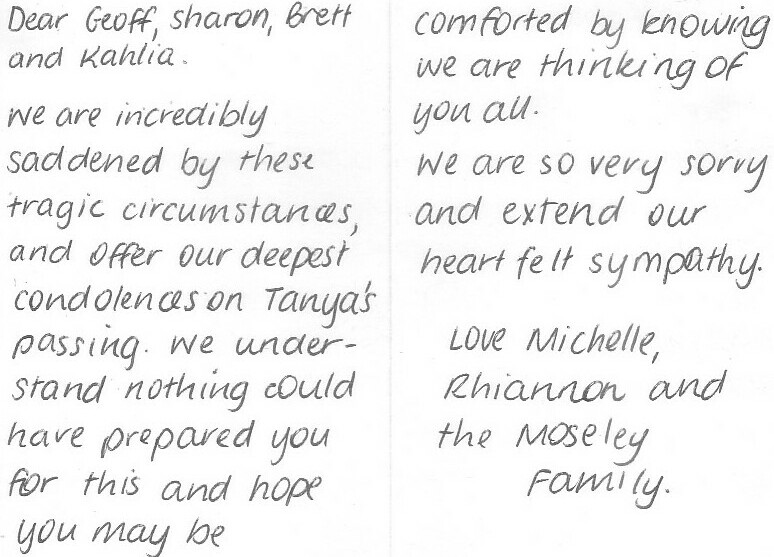 Dear Geoff, Sharon, Brett
and Kahlia.
We are incredibly
saddened by these
tragic circumstances,
and offer our deepest
condolences on Tanya's
passing. We under-
stand nothing could
have prepared you
for this and hope
you may be
comforted by knowing
we are thinking of
you all.
We are so very sorry
and extend our
heart felt sympathy.
Love Michelle,
Rhiannon and
the Moseley
Family.